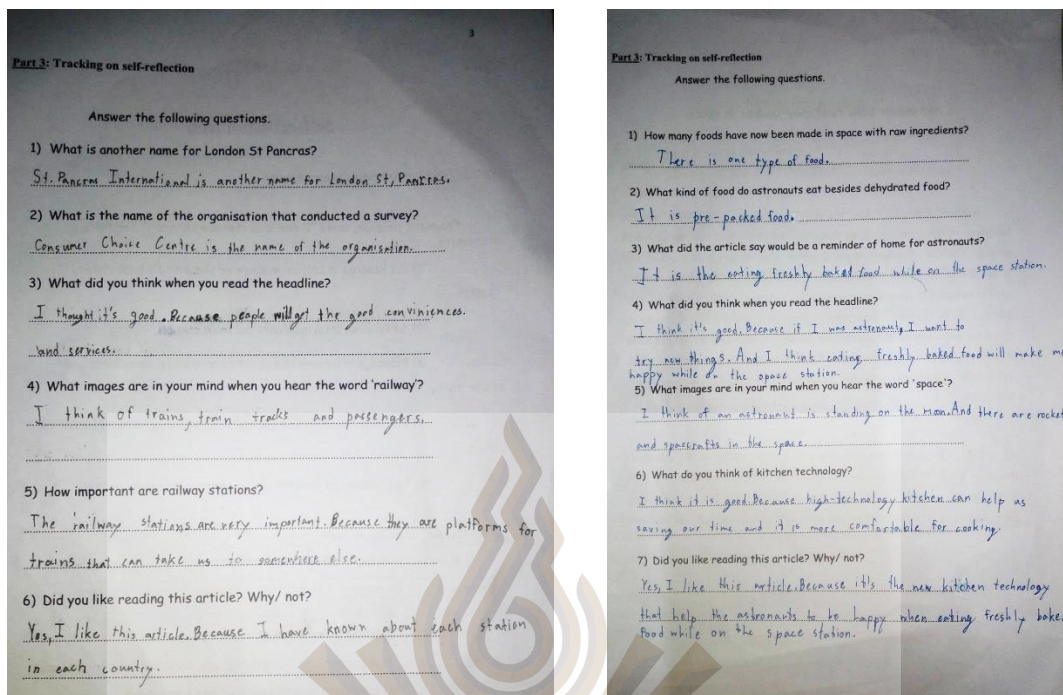 3
Part 3: Tracking on self-reflection
Answer the following questions.
1) What is another name for London St Pancras?
St. Pancras International is another name for London St, Pancras.
2) What is the name of the organisation that conducted a survey?
Consumer Choice Centre is the name of the organisation.
3) What did you think when you read the headline?
I thought it's good. Because people will get the good conviniences.
and services.
4) What images are in your mind when you hear the word 'railway'?
I think of trains, train tracks and passengers.
5) How important are railway stations?
The railway stations are very important. Because they are platforms for
trains that can take us to somewhere else.
6) Did you like reading this article? Why/ not?
Yes, I like this article. Because I have known about each station
in each country.
Part 3: Tracking on self-reflection
Answer the following questions.
1) How many foods have now been made in space with raw ingredients?
There is one type of food.
2) What kind of food do astronauts eat besides dehydrated food?
It is pre-packed food.
3) What did the article say would be a reminder of home for astronauts?
It is the eating freshly baked food while on the space station.
4) What did you think when you read the headline?
I think it's good. Because if I was I want to
try new things. And I think eating freshly baked food will make me
happy while on the space station.
5) What images are in your mind when you hear the word 'space'?
I think of an astronaut is standing on the moon. And there are rocket
and spacecrafts in the space.
6) What do you think of kitchen technology?
I think it is good. Because high-technology kitchen can help us
saving our time and it is more comfortable for cooking.
7) Did you like reading this article? Why/ not?
Yes, I like this article. Because it's the new kitchen technology
that help the astronauts to be happy when eating freshly bake
food while on the space station.